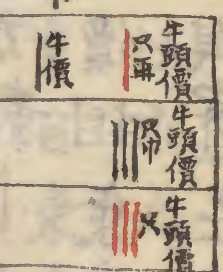 牛頭價
只再
|
牛價
|
牛頭價
只巾
|||
牛頭價
只
|||